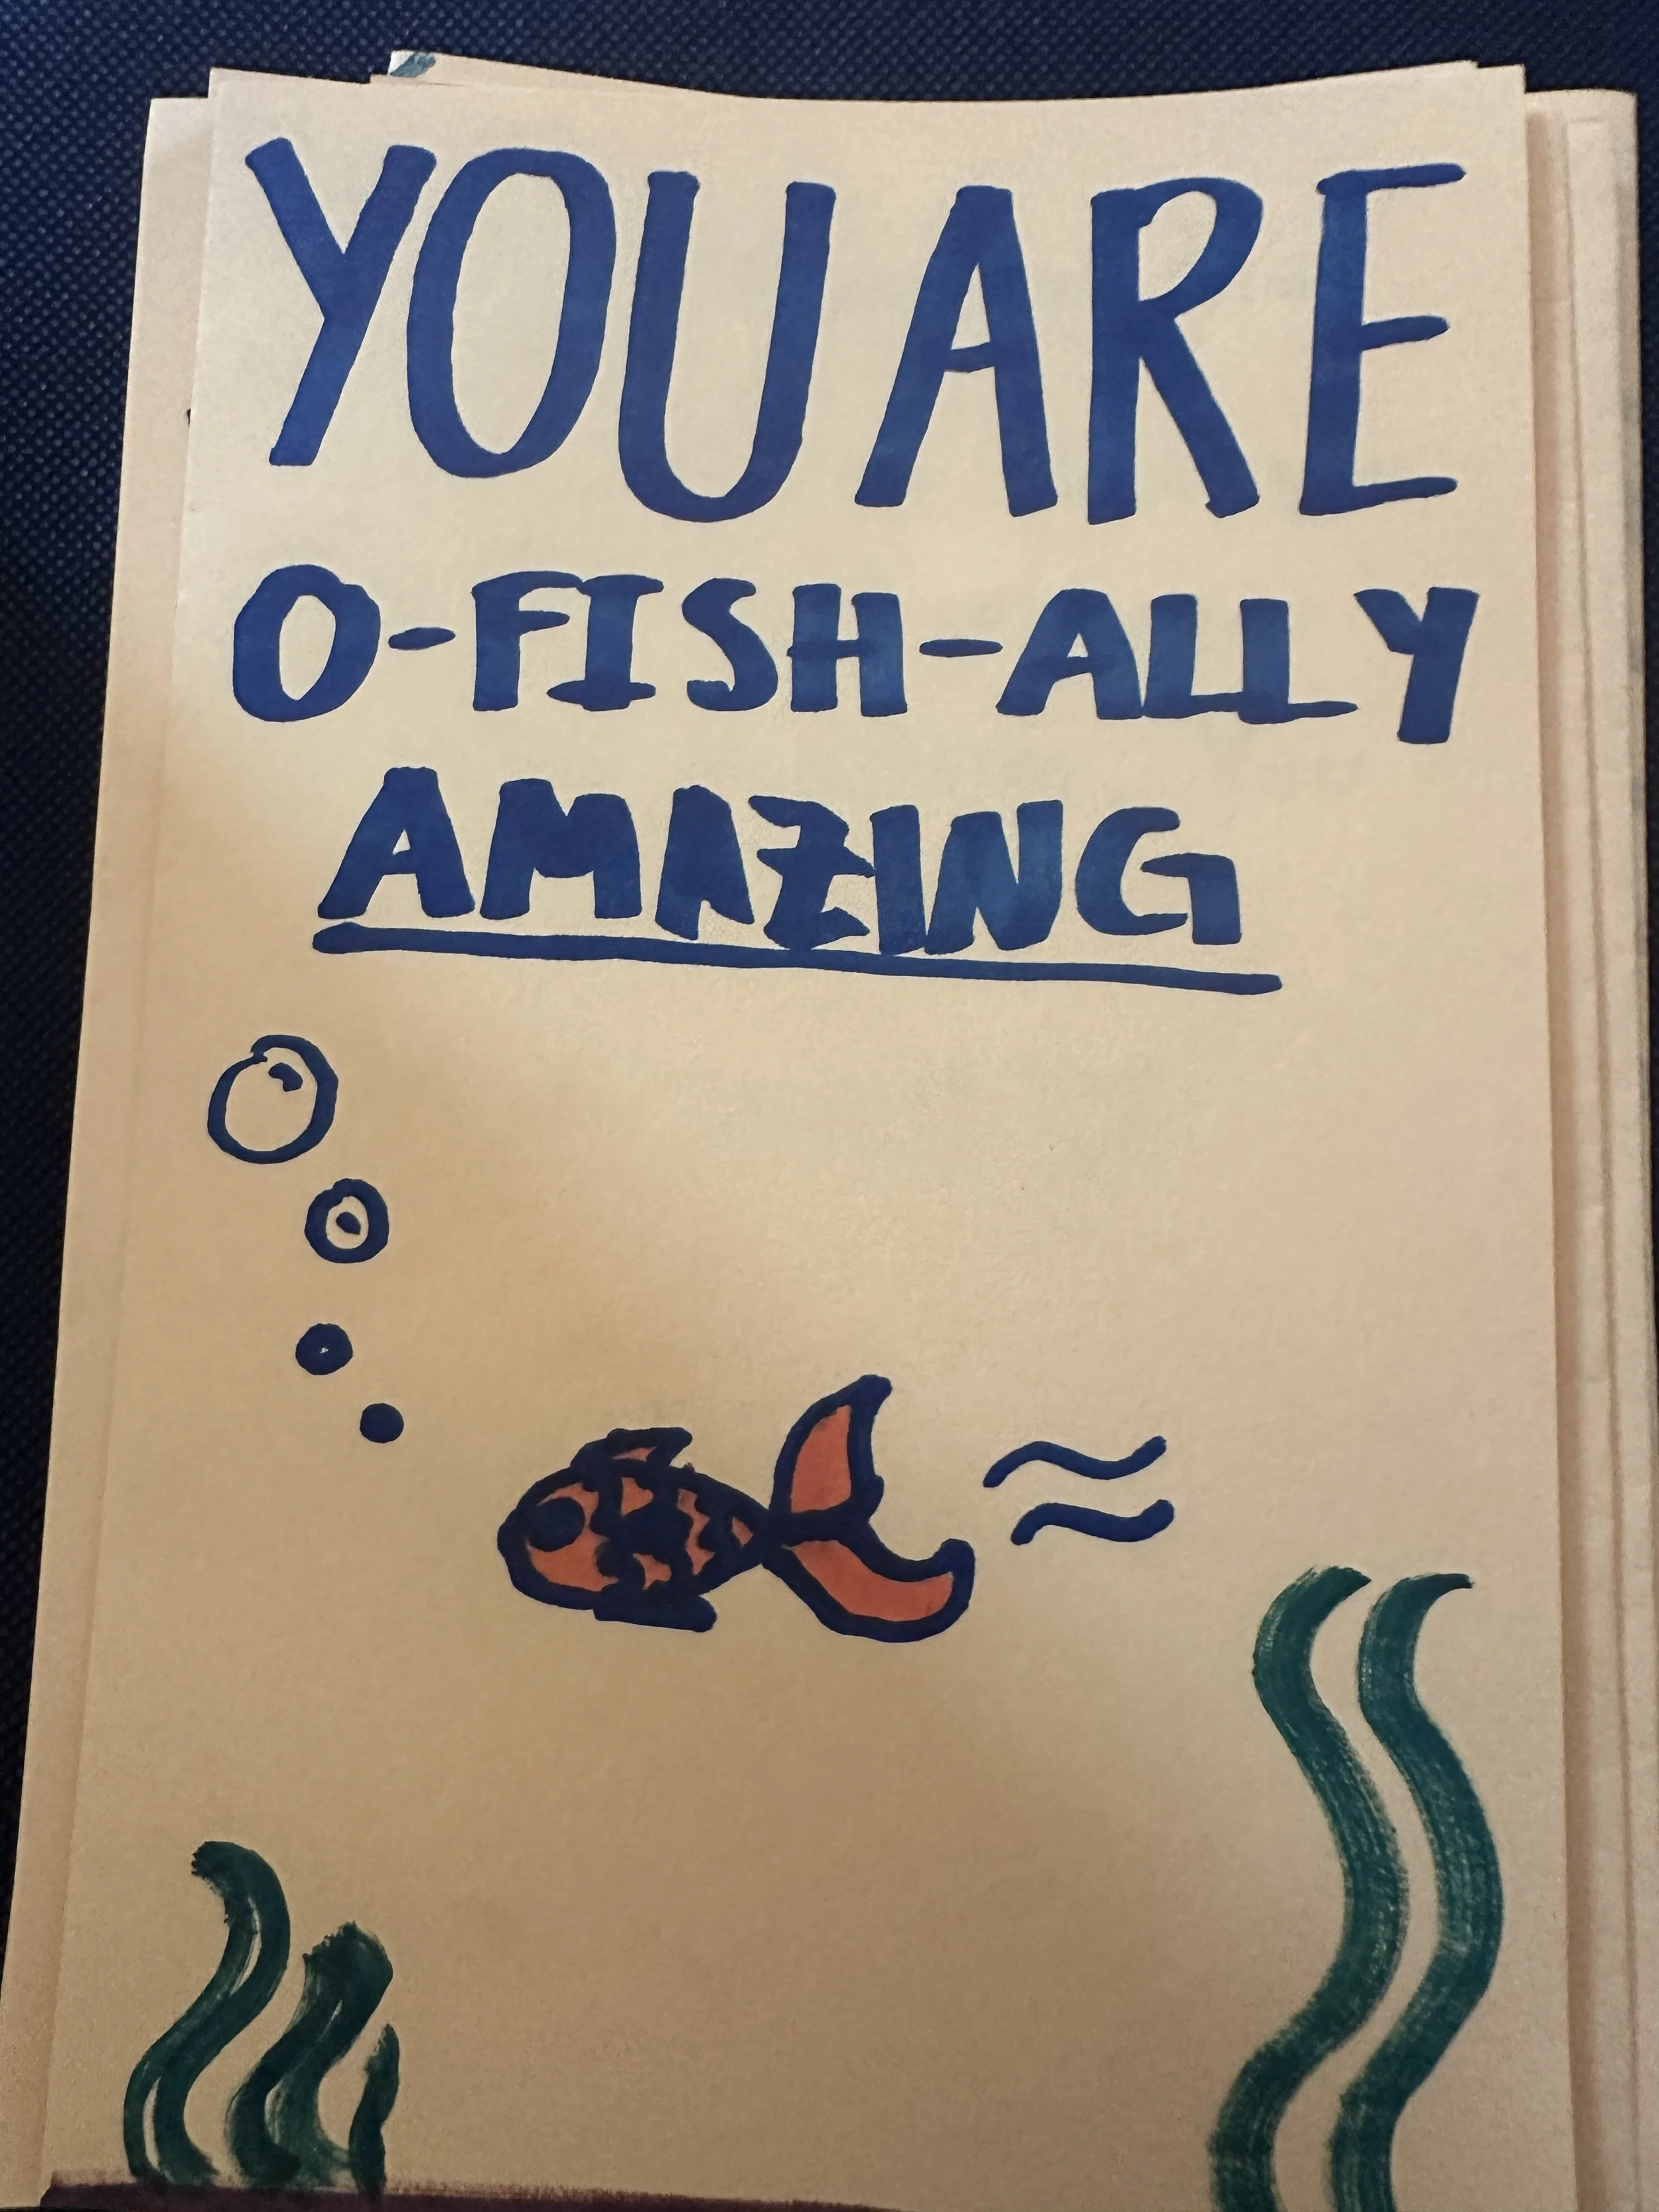 YOU ARE
O-FISH-ALLY
AMAZING